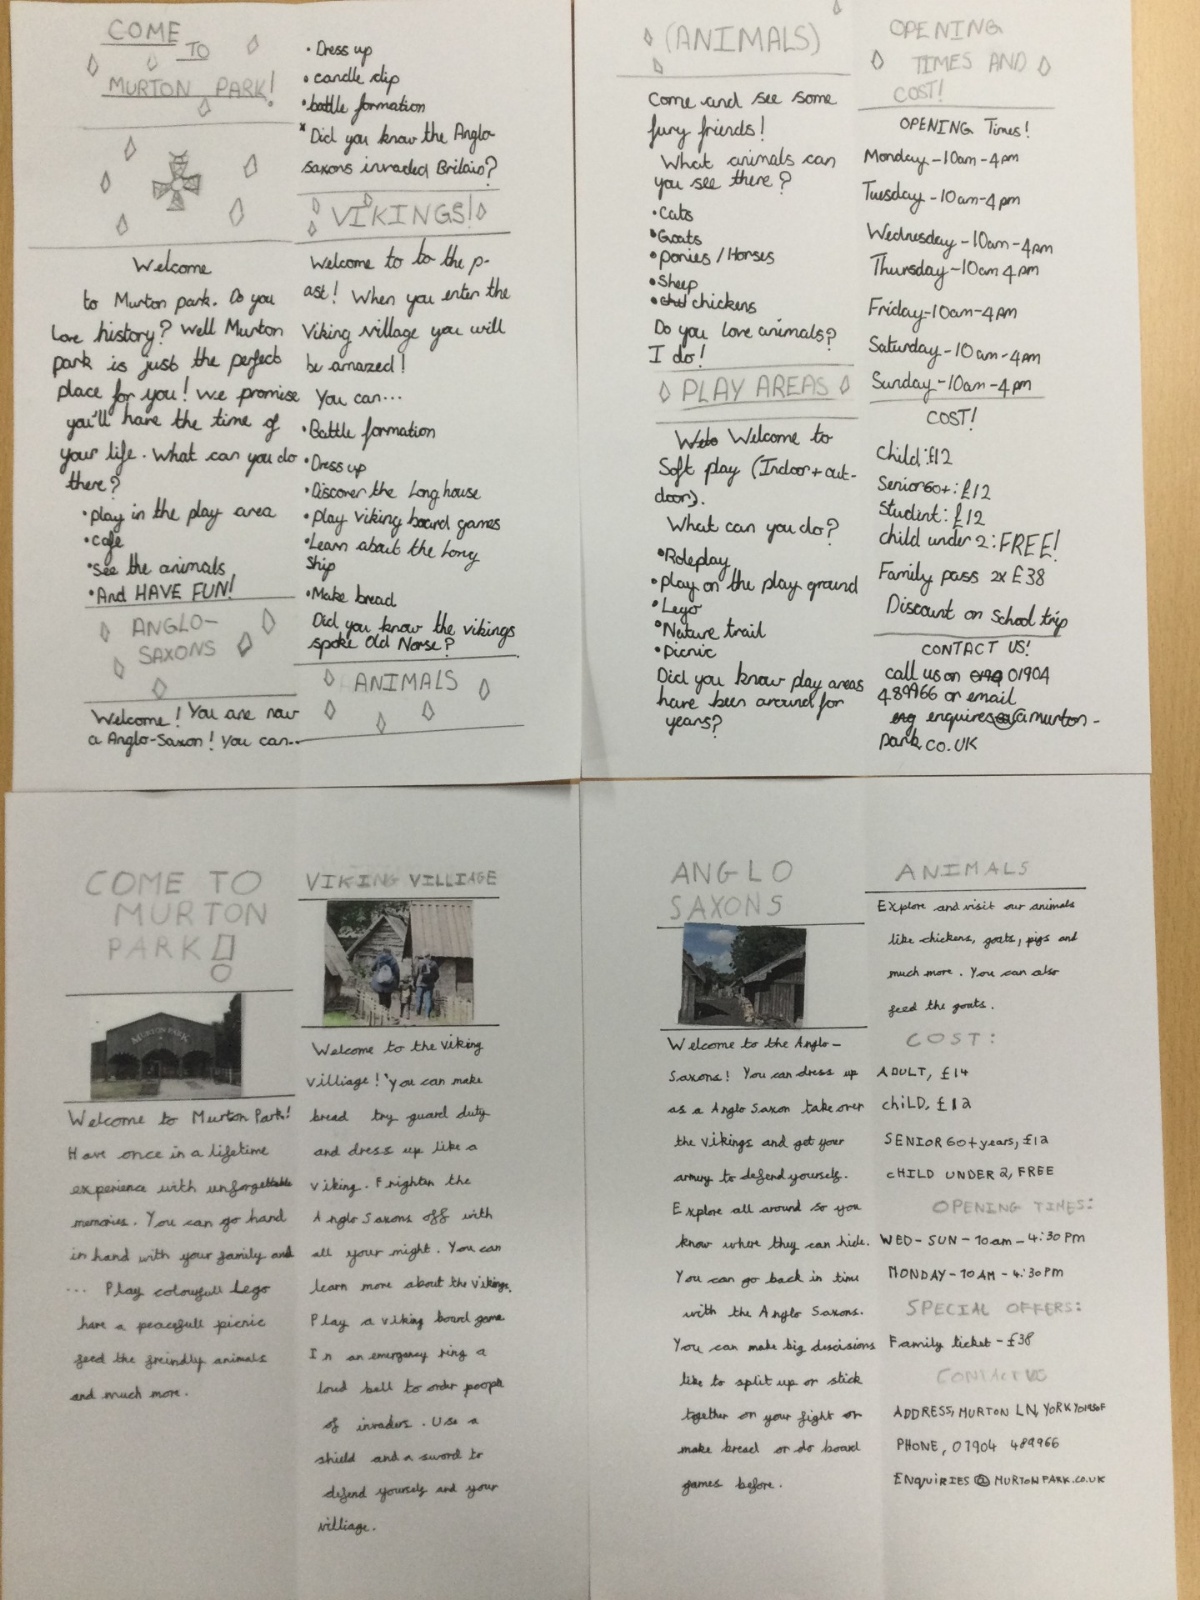 COME
TO
MURTON PARK!
Welcome
to Murton park. Do you
love history? Well Murton
park is just the perfect
place for you! We promise
you'll have the time of
your life. What can you do
there?
• play in the play area
• cafe
• See the animals
• And HAVE FUN!
ANGLO-
SAXONS
Welcome! You are now
a Anglo-Saxon! You can...
• Dress up
• candle dip
• battle formation
* Did you know the Anglo-
saxons invaded Britain?
VIKINGS!
Welcome to to the p-
ast! When you enter the
Viking village you will
be amazed!
You can...
• Battle formation
• Dress up
• Discover the Longhouse
• Play viking board games
• Learn about the Long
Ship
• Make bread
Did you know the vikings
spoke Old Norse?
ANIMALS
(ANIMALS)
Come and see some
fury friends!
What animals can
you see there?
• Cats
• Goats
• ponies / Horses
• Sheep
• chickens
Do you love animals?
I do!
PLAY AREAS
Welcome to
Soft play (Indoor + out-
door).
What can you do?
• Roleplay
• play on the play ground
• Lego
• Nature trail
• Picnic
Did you know play areas
have been around for
years?
OPENING
TIMES AND
COST!
OPENING Times!
Monday - 10am - 4pm
Tuesday - 10am - 4pm
Wednesday - 10am - 4pm
Thursday - 10am 4pm
Friday - 10am - 4pm
Saturday - 10am - 4pm
Sunday - 10am - 4pm
COST!
Child: £12
Senior 60+: £12
Student: £12
child under 2: FREE!
Family pass 2x £38
Discount on School trip
CONTACT US!
call us on 01904
489966 or email
enquires@murton-
park.co.uk
COME TO
MURTON
PARK!
MURTON PARK
Welcome to Murton Park!
Have once in a lifetime
experience with unforgettable
memories. You can go hand
in hand with your family and
... Play colourfull Lego
have a peacefull picnic
feed the freindly animals
and much more.
VIKING VILLIAGE
Welcome to the viking
villiage! You can make
bread try guard duty
and dress up like a
viking. Frighten the
Anglo Saxons off with
all your might. You can
learn more about the vikings.
Play a viking board game
In an emergency ring a
loud bell to order poeple
of invaders. Use a
shield and a sword to
defend yourself and your
villiage.
ANGLO
SAXONS
Welcome to the Anglo-
Saxons! You can dress up
as a Anglo Saxon take over
the vikings and get your
armury to defend yourself.
Explore all around so you
know where they can hide.
You can go back in time
with the Anglo Saxons.
You can make big descisions
like to split up or stick
together on your fight or
make bread or do board
games before.
ANIMALS
Explore and visit our animals
like chickens, goats, pigs and
much more. You can also
feed the goats.
COST:
ADULT, £14
CHILD, £12
SENIOR 60+ years, £12
CHILD UNDER 2, FREE
OPENING TIMES:
WED - SUN - 10am - 4:30 PM
MONDAY - 10 AM - 4:30 PM
SPECIAL OFFERS:
Family ticket - £38
CONTACT US
ADDRESS, MURTON LN, YORK
PHONE, 01904 489966
ENQUIRIES @ MURTONPARK.CO.UK